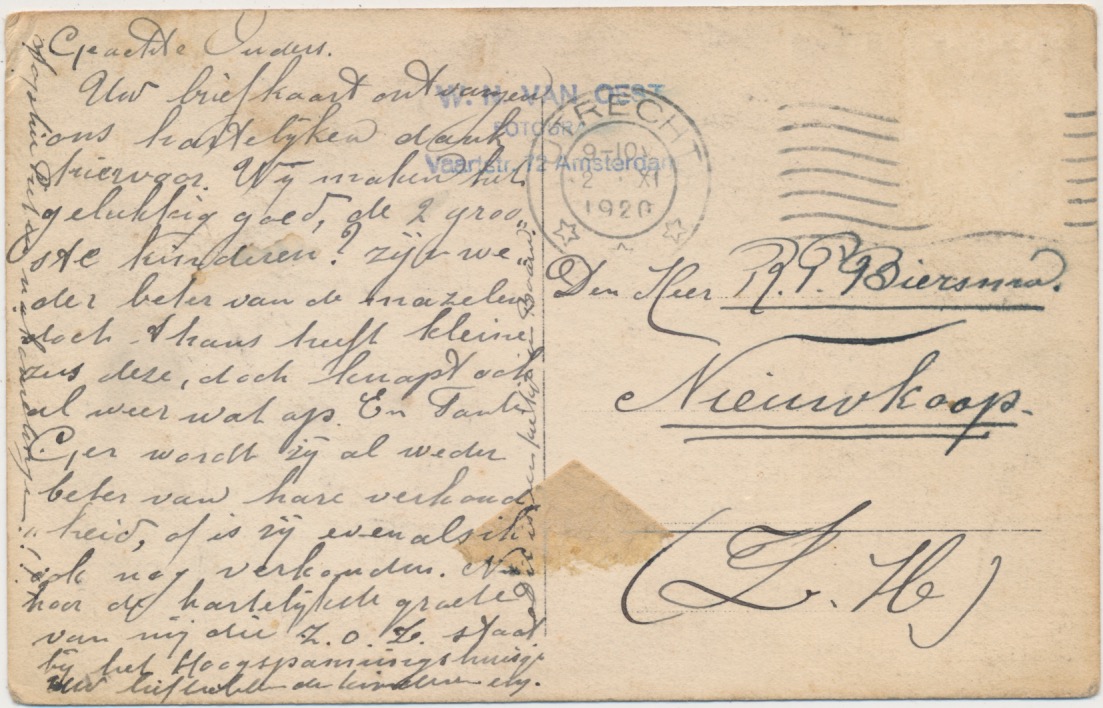 Geachte Ouders.
Uw briefkaart ontvangen
ons hartelijken dank
hiervoor. Wij maken het
gelukkig goed, de 2 groo
ste kinderen? zijn we
der beter van de mazelen
doch thans heeft kleine
zus deze, doch knapt ook
al weer wat op. En Tante
Ger wordt zij al weder
beter van hare verkoud
heid, of is zij evenals ik
ook nog verkouden. Nu
hoor de hartelijkste groete
van mij die z.o.z. staat
bij het Hoogspanningshuisje
Uw liefhebbende kinderen enz.
W. H. VAN OEST
FOTOGRA
Vaartstr. 72 Amsterdam
TRECHT
9-10V
2 XI
1920
Den Heer R. P. Biersma.
Nieuwkoop.
(Z. H)